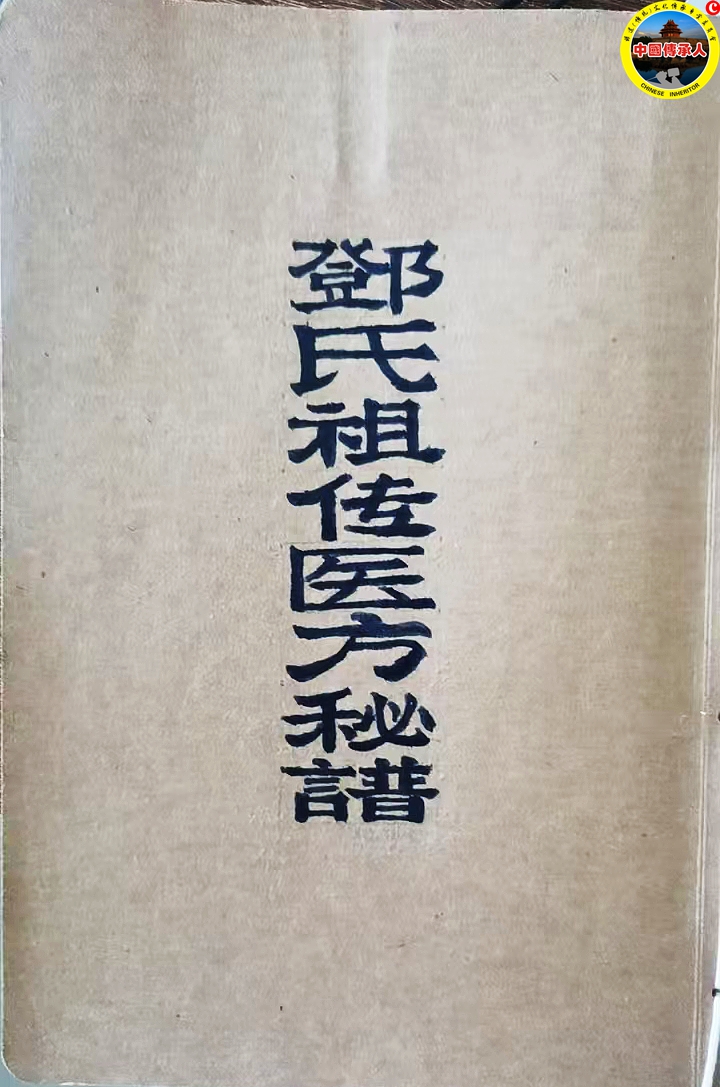 鄧氏祖传医方秘譜
中國傳承人
CHINESE INHERITOR
C